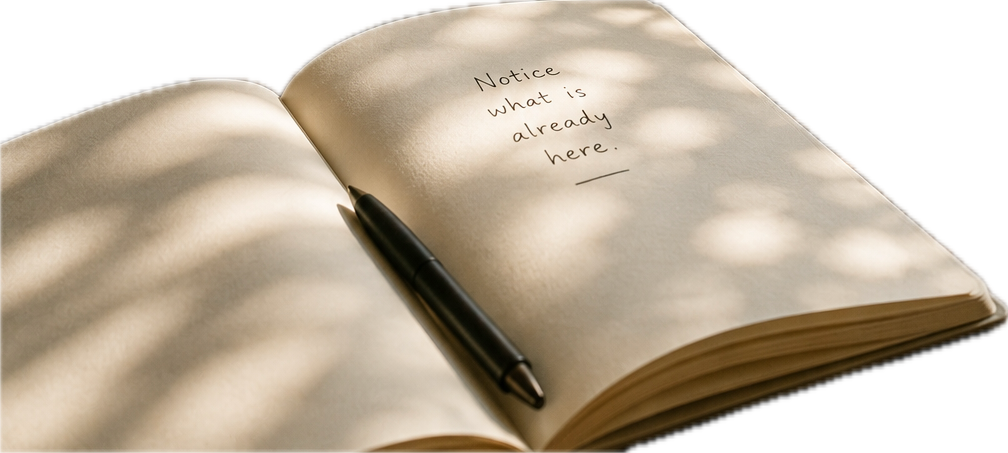 Notice
what is
already
here.